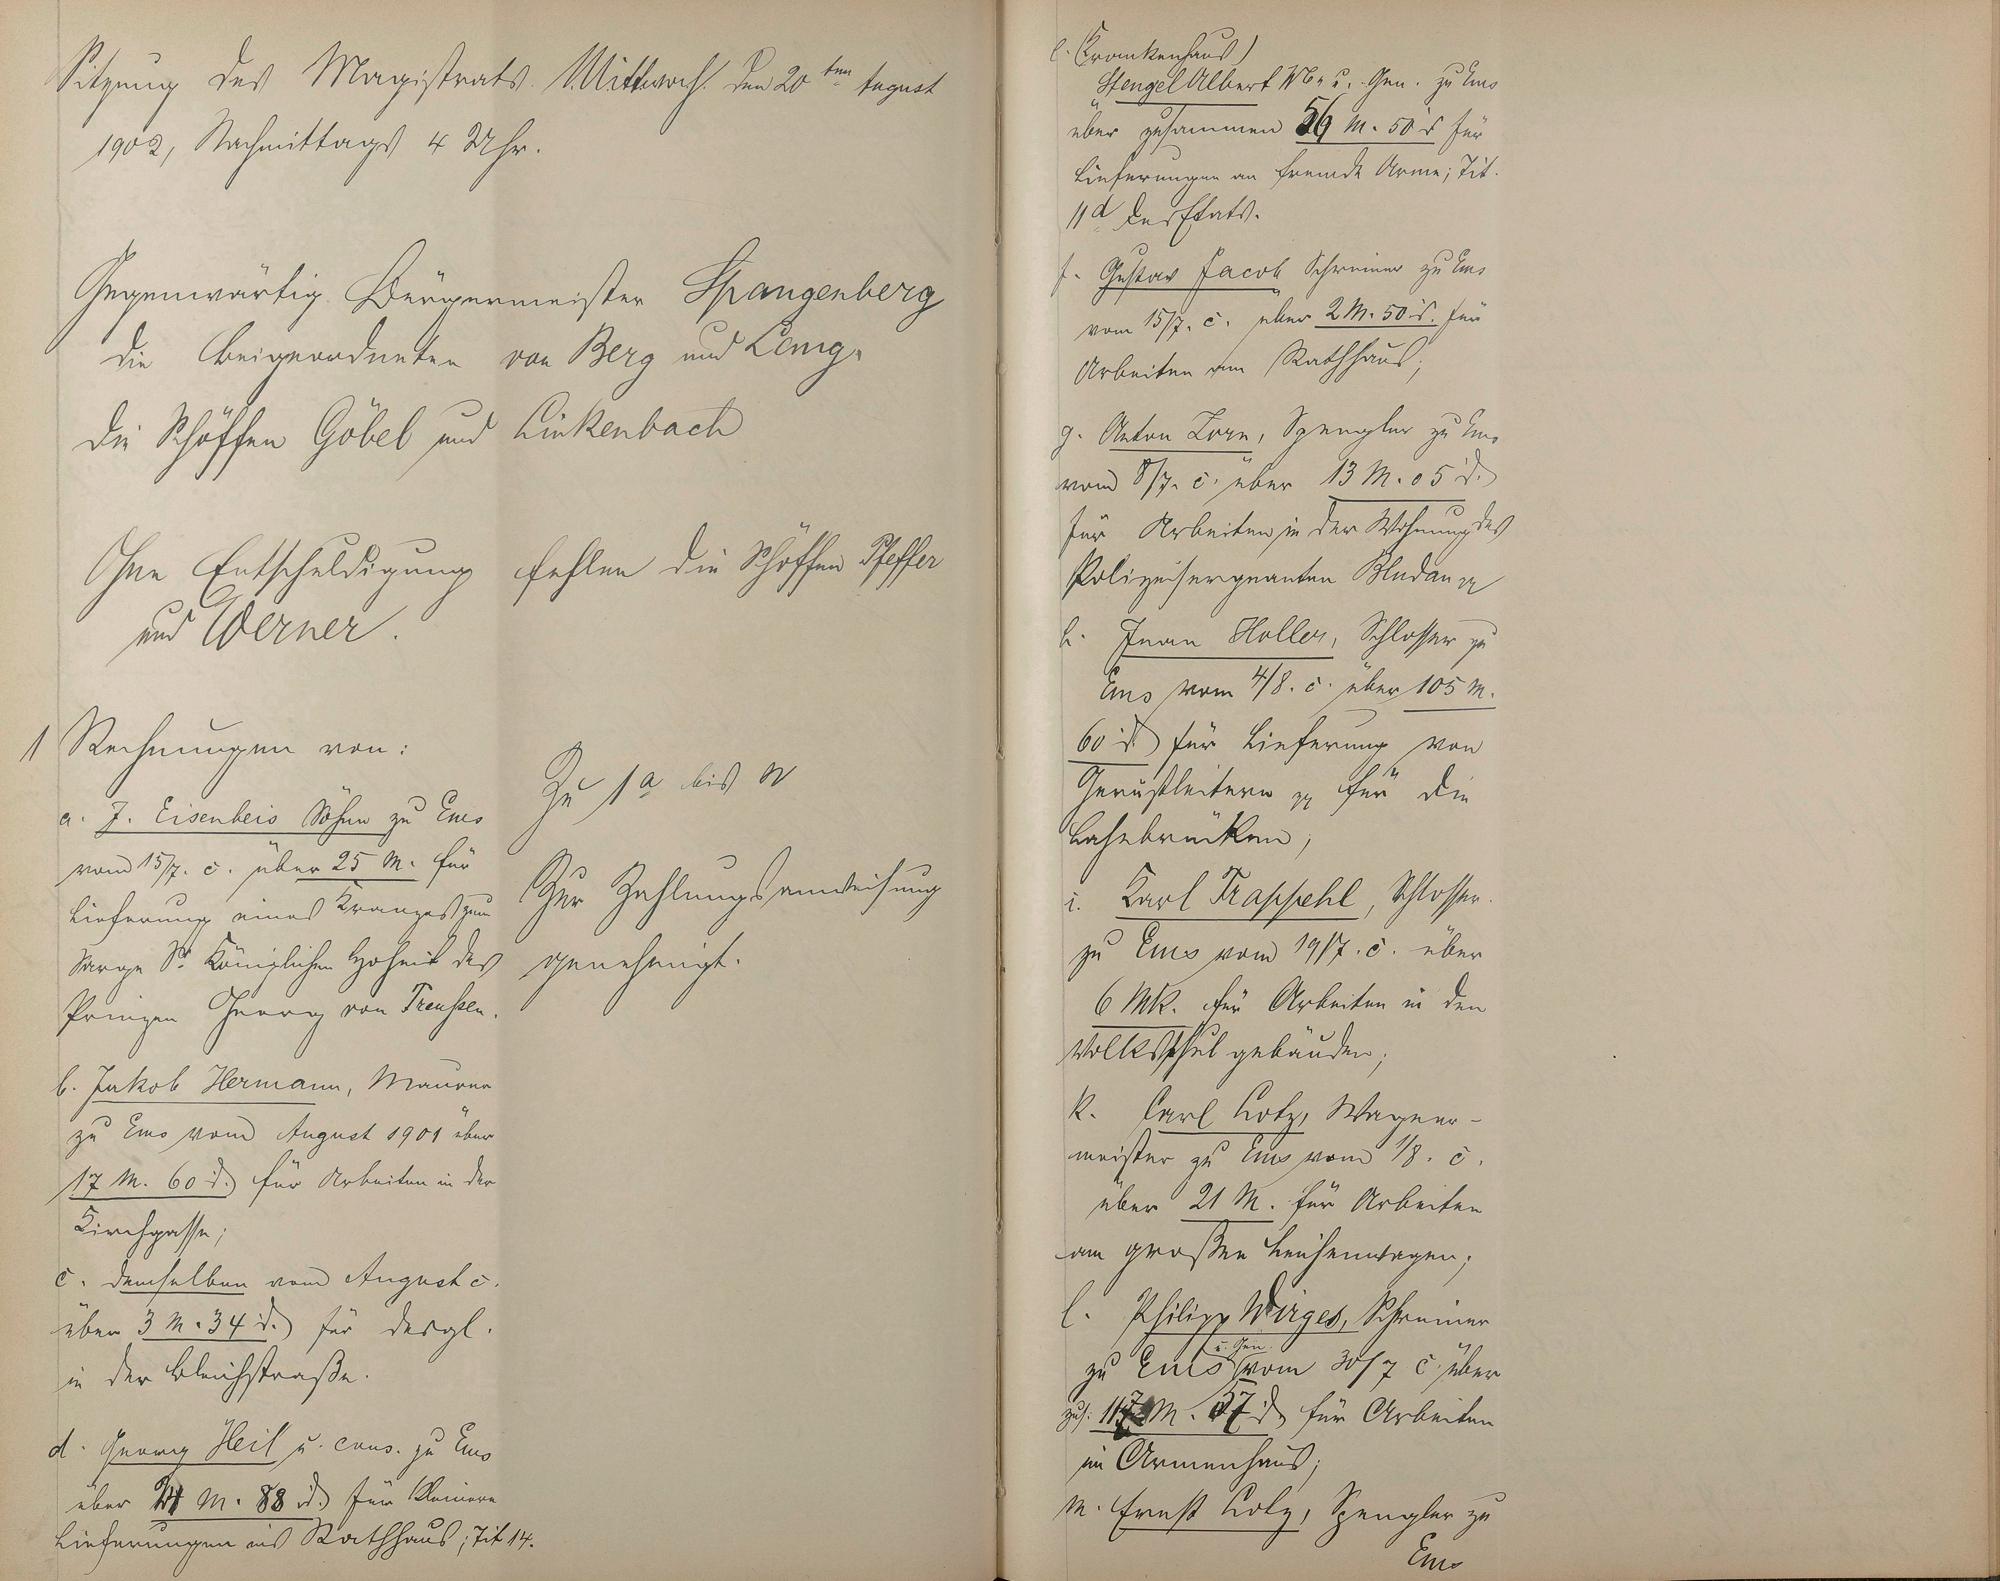 Sitzung des Magistrats Mittwoch den 20ten August
1902, Nachmittags 4 Uhr.
Gegenwärtig Bürgermeister Spangenberg
die Beigeordneten von Berg und
die Schöffen Göbel und Linkenbach
Ohne Entschuldigung fehlen die Schöffen Pfeffer
und Werner.
1 Rechnungen von:
a. J. Eisenbeis Söhne zu Ems
vom 15/7. c. über 25 M. für
Lieferung eines Kranzes zum
Sarge Sr. Königlichen Hoheit des
Prinzen Georg von Preußen.
b. Jakob Hermann, Maurer
zu Ems vom August 1901 über
17 M. 60 d. für Arbeiten in der
Kirchgasse;
c. demselben vom August c.
über 3 M. 34 d. für desgl.
in der Bleichstraße.
d. Georg Heil u. cons. zu Ems
über M. 88 d. für kleinere
Lieferungen ins Rathhaus; Tit 14.
Zu 1a bis n
Zur Zahlungsanweisung
genehmigt.
e. (Krankenhaus)
Stengel Albert Wwe u. Gen. zu Ems
über zusammen 56 M. 50 d für
Lieferungen an fremde Arme; Tit.
11d des Etats.
f. Gustav Jacob Schreiner zu Ems
vom 15/7. c. über 2 M. 50 d. für
Arbeiten am Rathhaus;
g. Anton Zorn, Spengler zu Ems
vom 8/7. c. über 13 M. 05 d.
für Arbeiten in der Wohnung des
Polizeisergeanten Bludau pp
h. Jean Holler, Schlosser zu
Ems vom 4/8. c. über 105 M.
60 d. für Lieferung von
Gerüstleitern pp für die
Lahnbrücken;
i. Karl Trappehl, Schlosser
zu Ems vom 19/7. c. über
6 Mk. für Arbeiten in den
Volksschulgebäuden;
k. Carl Lotz, Wagner-
meister zu Ems vom 1/8. c.
über 21 M. für Arbeiten
am großen Leichenwagen;
l. Philipp Wirges, Schreiner
u. Gen.
zu Ems vom 30/7 c. über
zus. 117 M. 57 d für Arbeiten
im Armenhaus;
m. Ernst Lotz, Spengler zu
Ems